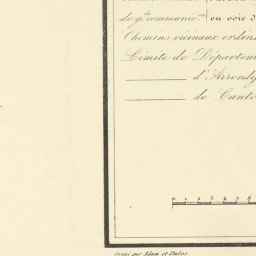 de gde communic
en voie d
Chemins vicinaux ordin
Limite de Départem
d'Arrondi
de Canto
Gravé par Adam et Dubus